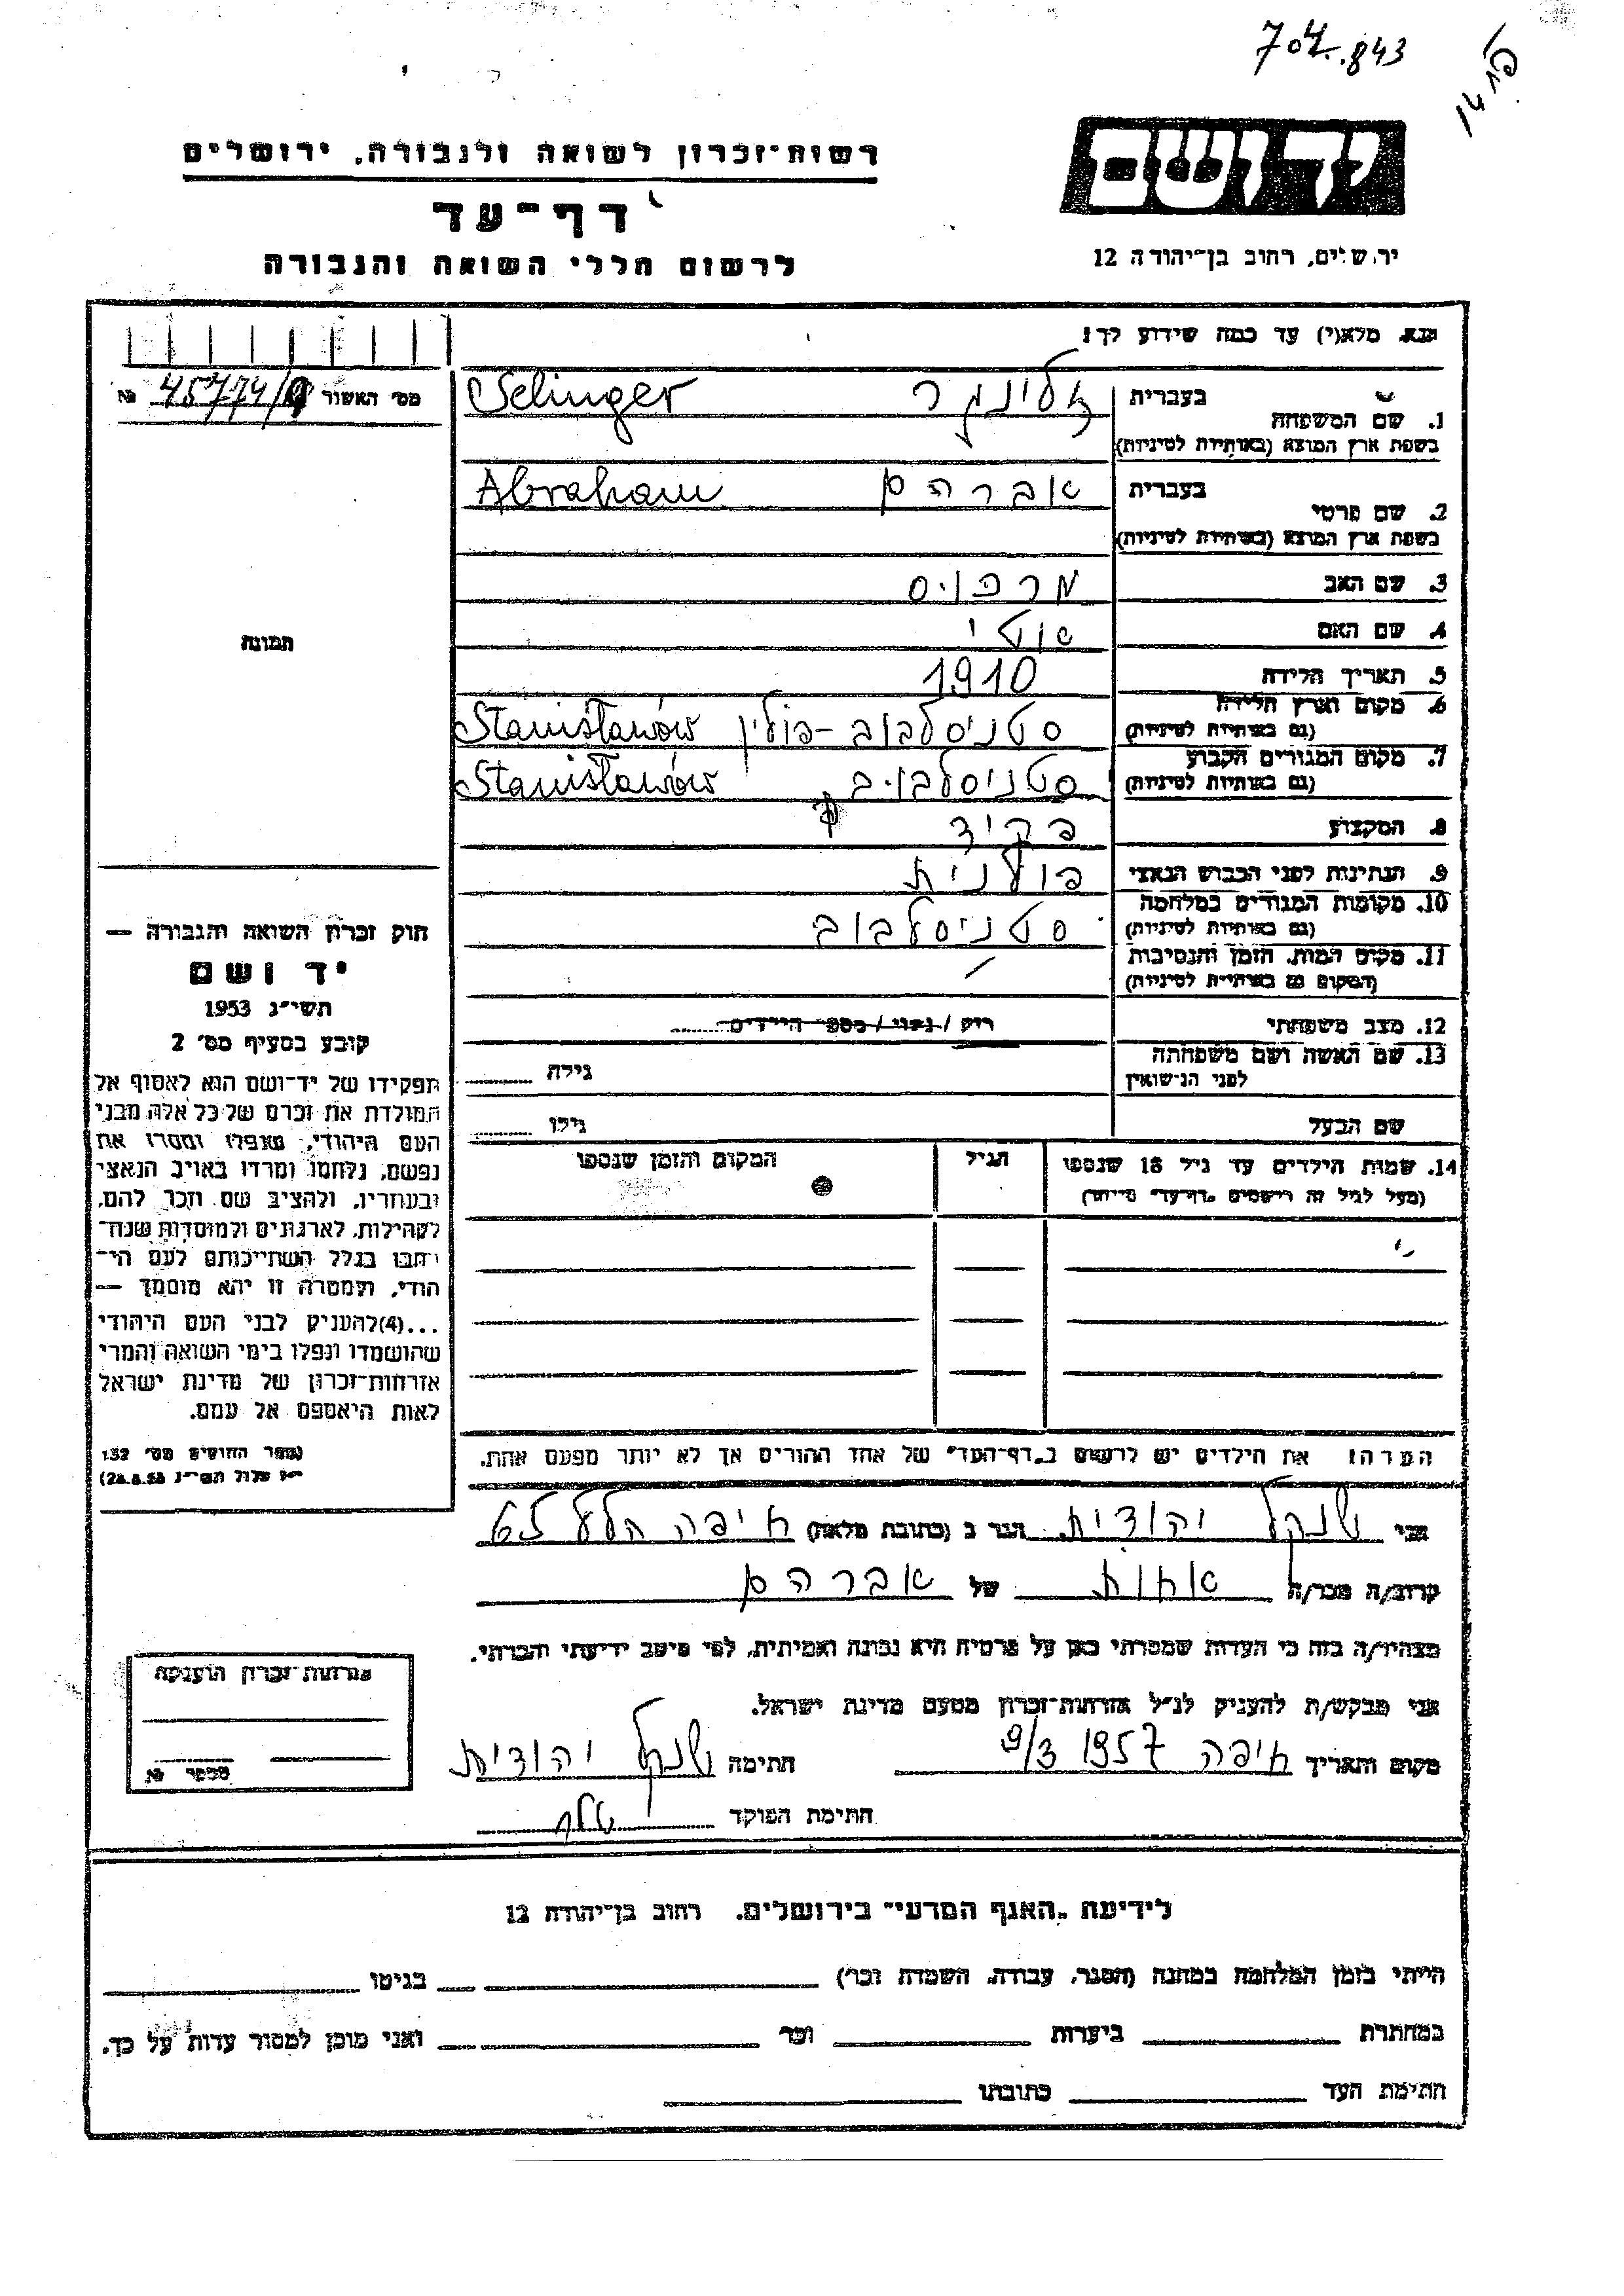 704.843
יד ושם
רשות־זכרון לשואה ולגבורה, ירושלים
דף־עד
ירושלים, רחוב בן־יהודה 12
לרשום חללי השואה והגבורה
נא מלא(י) עד כמה שידוע לך!
מס׳ האשור 45774/ №
בעברית זלינגר Selinger
1. שם המשפחה
בשפת ארץ המוצא (באותיות לטיניות)
בעברית אברהם Abraham
2. שם פרטי
בשפת ארץ המוצא (באותיות לטיניות)
3. שם האב מרכוס
4. שם האם
תמונה
5. תאריך הלידה 1910
6. מקום וארץ הלידה סטניסלבוב - פולין Stanisławów
(גם באותיות לטיניות)
7. מקום המגורים הקבוע סטניסלבוב Stanisławów
(גם באותיות לטיניות)
8. המקצוע פקיד
9. הנתינות לפני הכבוש הנאצי פולנית
10. מקומות המגורים במלחמה סטניסלבוב
(גם באותיות לטיניות)
11. מקום המות, הזמן והנסיבות
(המקום גם באותיות לטיניות)
12. מצב משפחתי רווק / נשוי / מספר הילדים
13. שם האשה ושם משפחתה גילה
לפני הנישואין
שם הבעל גילו
14. שמות הילדים עד גיל 18 שנספו הגיל המקום והזמן שנספו
(מעל לגיל זה רושמים "דף־עד" מיוחד)
חוק זכרון השואה והגבורה —
יד ושם
תשי״ג 1953
קובע בסעיף מס׳ 2
תפקידו של יד־ושם הוא לאסוף אל
המולדת את זכרם של כל אלה מבני
העם היהודי, שנפלו ומסרו את
נפשם, נלחמו ומרדו באויב הנאצי
ובעוזריו, ולהציב שם וזכר להם,
לקהילות, לארגונים ולמוסדות שנח־
רבו בגלל השתייכותם לעם הי־
הודי, ולמטרה זו יהא מוסמך —
...(4) להעניק לבני העם היהודי
שהושמדו ונפלו בימי השואה והמרי
אזרחות־זכרון של מדינת ישראל
לאות היאספם אל עמם.
(ספר החוקים מס׳ 132
י״ז אלול תשי״ג 28.8.53)
הערה: את הילדים יש לרשום ב"דף־העד" של אחד ההורים אך לא יותר מפעם אחת.
אני שנקל יהודית הגר ב (כתובת מלאה) חיפה 65
קרוב/ה מכר/ה אחות של אברהם
מצהיר/ה בזה כי העדות שמסרתי כאן על פרטיה היא נכונה ואמיתית, לפי מיטב ידיעתי והכרתי.
אני מבקש/ת להעניק לנ״ל אזרחות־זכרון מטעם מדינת ישראל.
מקום ותאריך חיפה 9/3 1957 חתימה שנקל יהודית
חתימת הפוקד
אזרחות־זכרון הוענקה
מספר №
לידיעת "האגף המדעי" בירושלים. רחוב בן־יהודה 12
הייתי בזמן המלחמה במחנה (הסגר, עבודה, השמדה וכו׳) בגיטו
במחתרת ביערות וכו׳ ואני מוכן למסור עדות על כך.
חתימת העד כתובתו